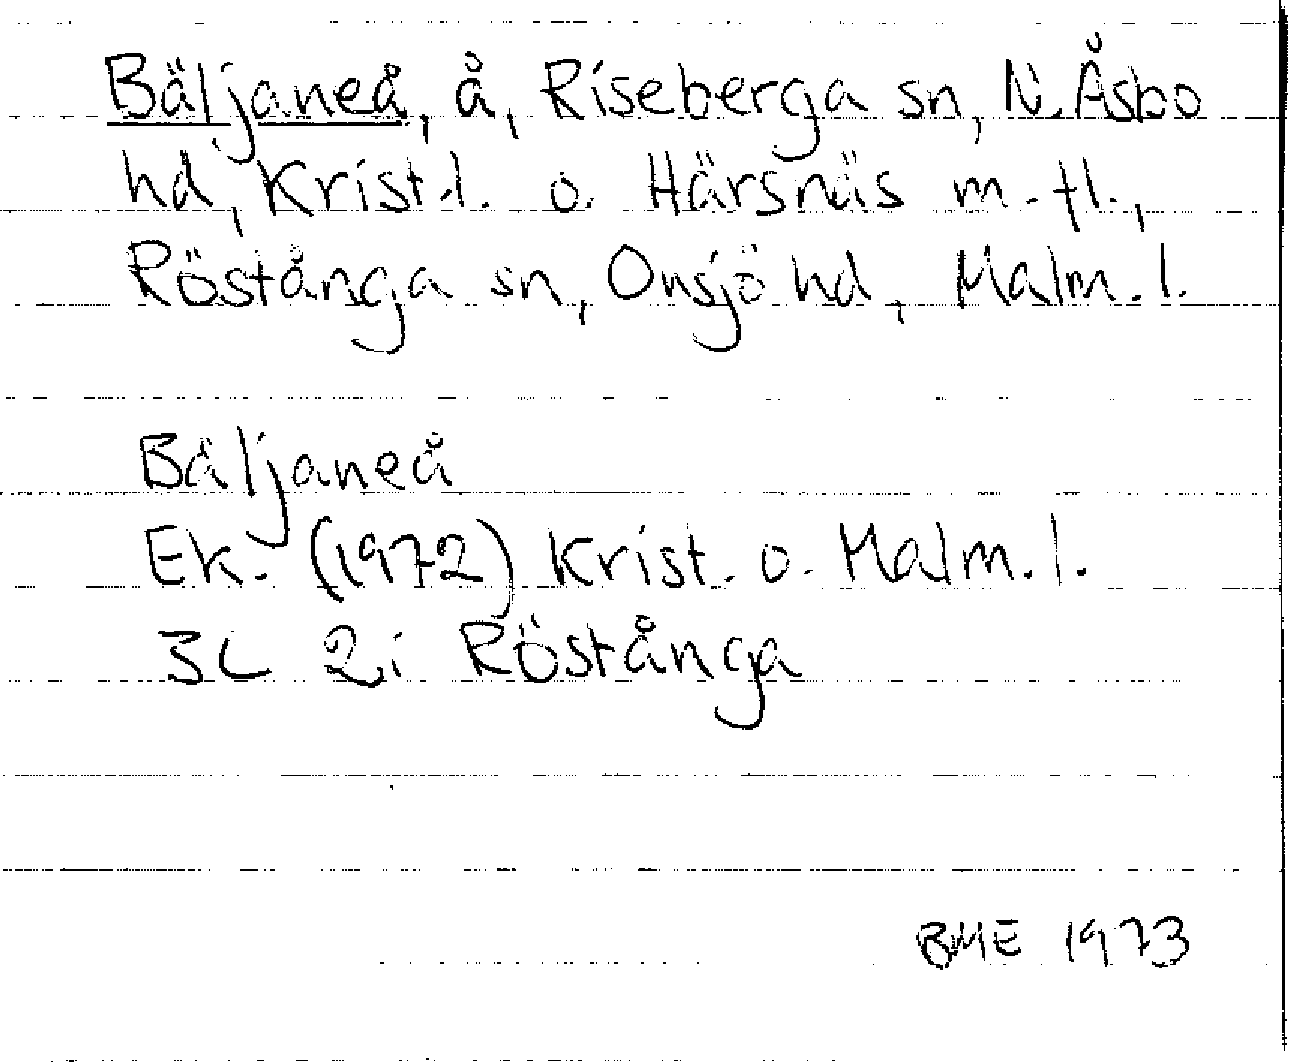 Bäljaneå, å, Riseberga sn, N. Åsbo
hd, Krist.l. o. Härsnäs m.fl.,
Röstånga sn, Onsjö hd, Malm.l.
Bäljaneå
Ek. (1972) Krist. o. Malm.l.
3C 2i Röstånga
BME 1973